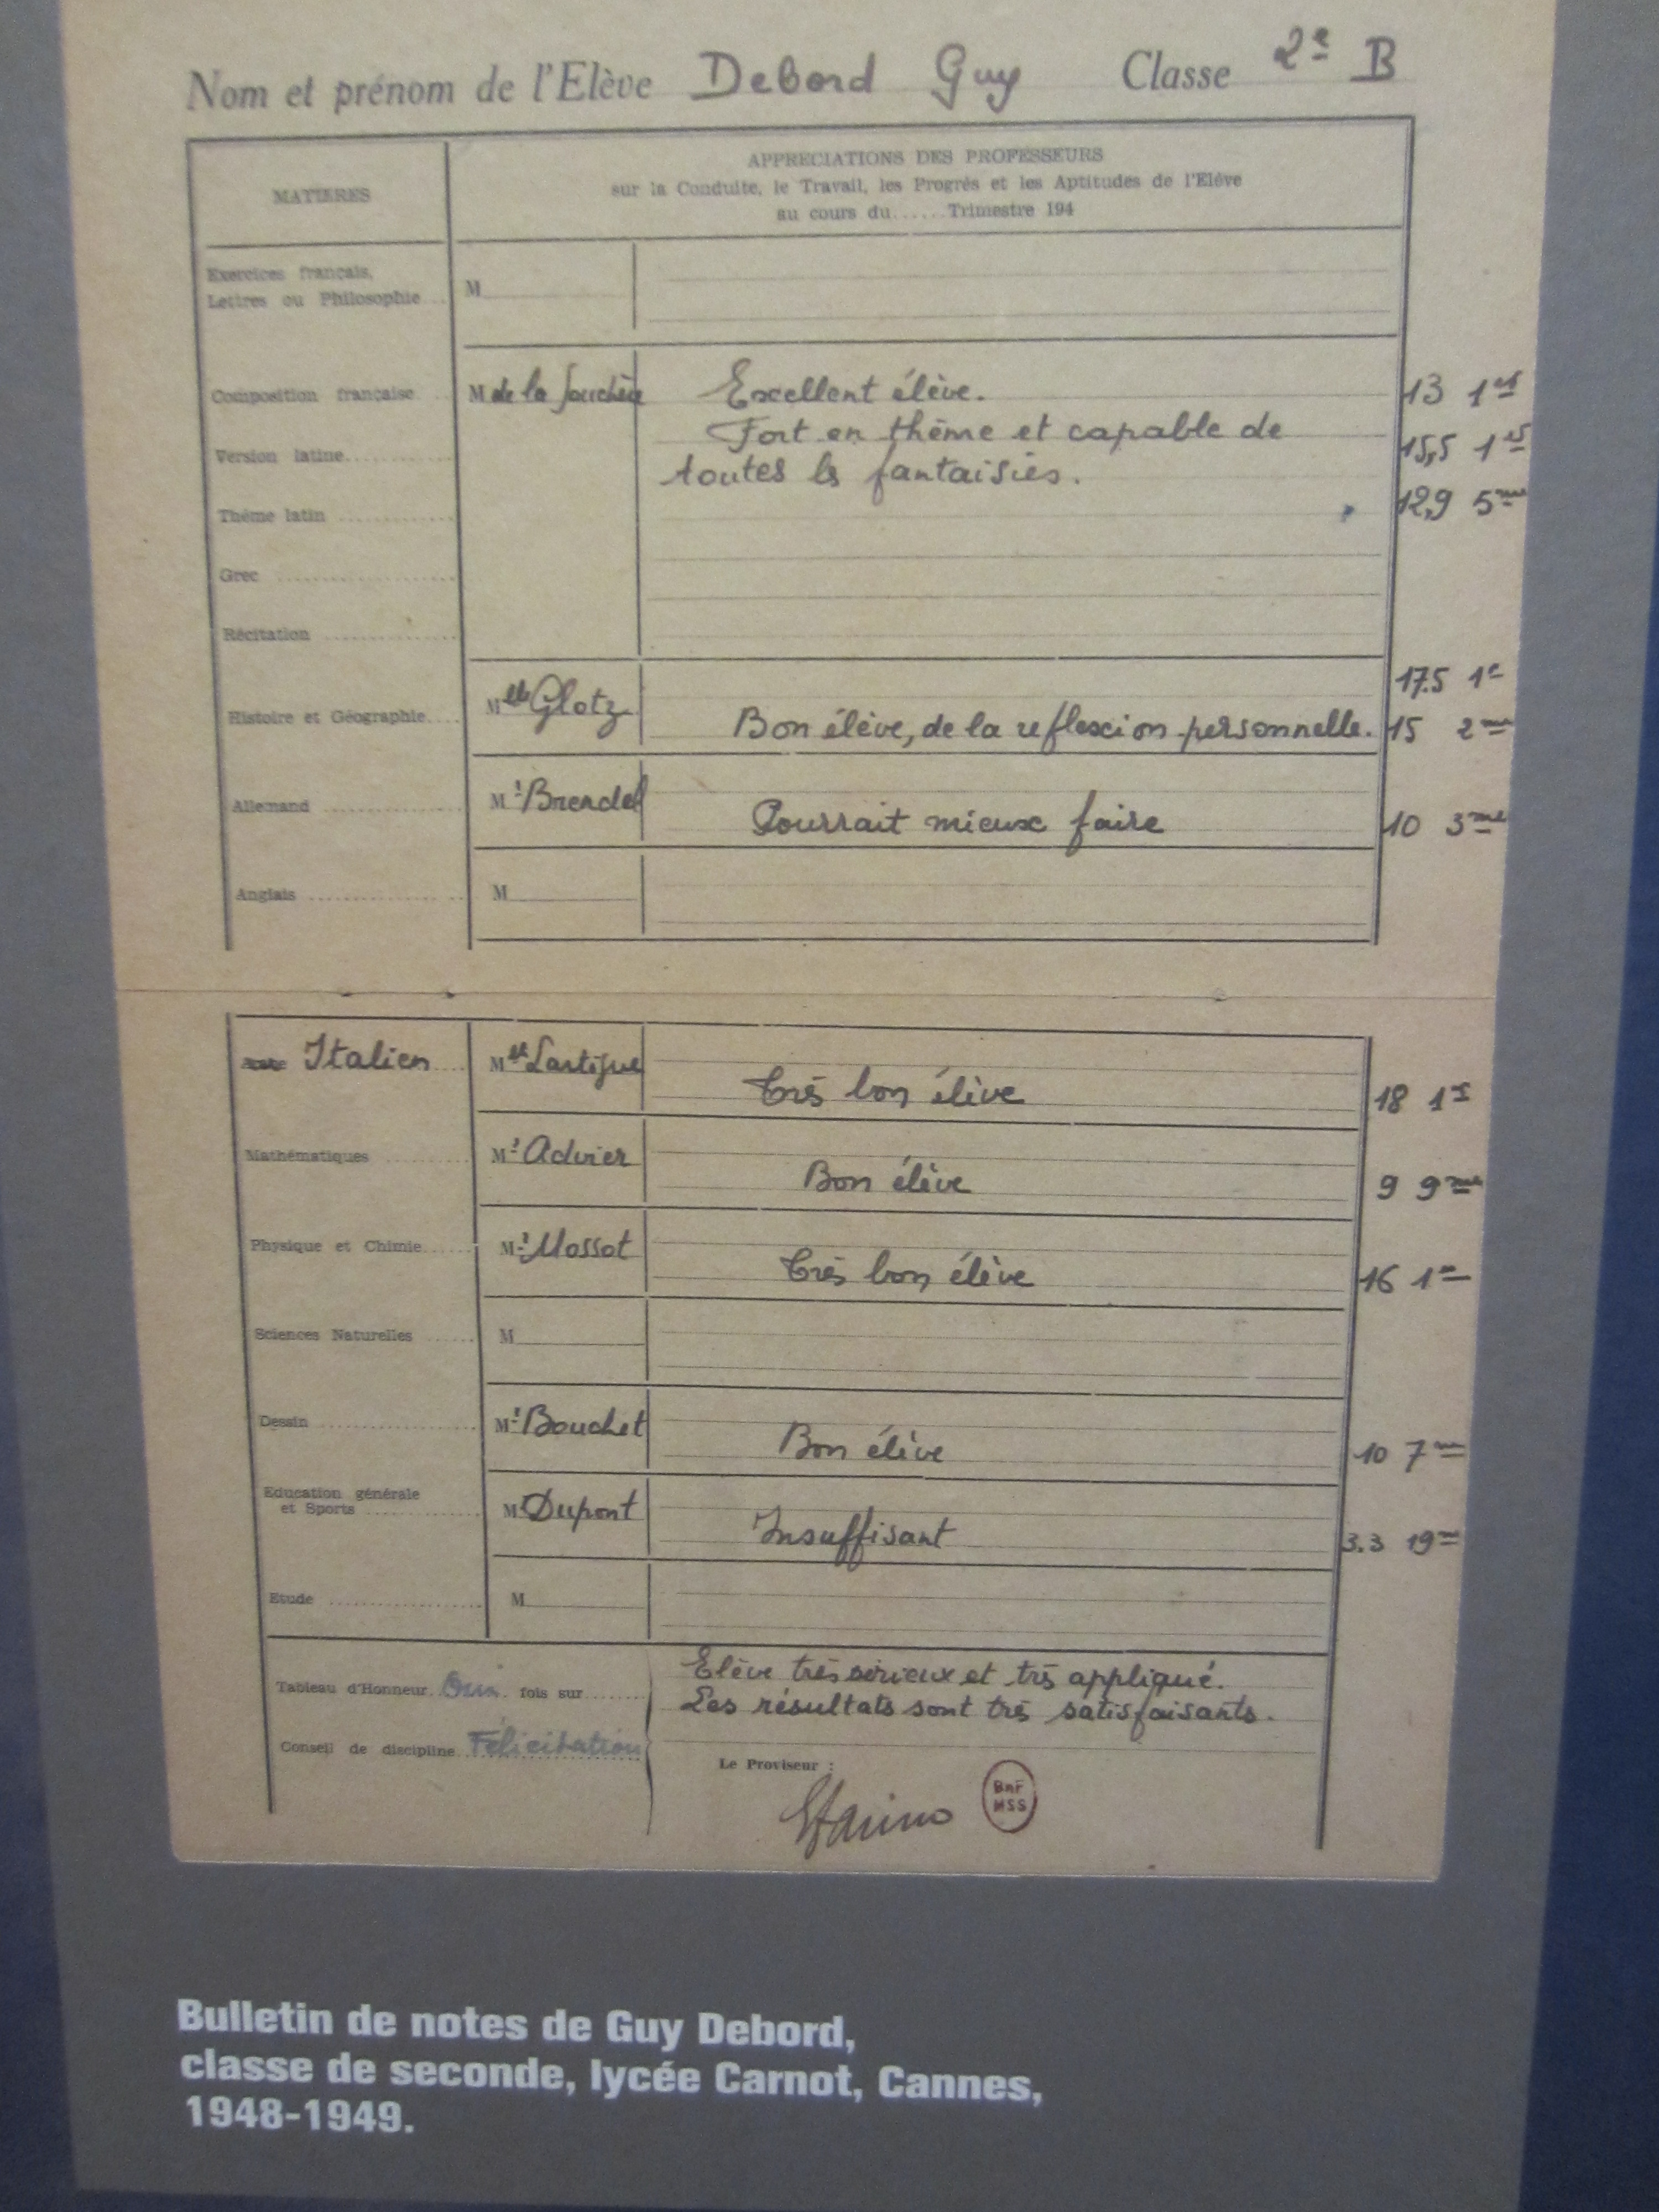 Nom et prénom de l'Elève Debord Guy Classe 2e B
MATIERES
APPRECIATIONS DES PROFESSEURS
sur la Conduite, le Travail, les Progrès et les Aptitudes de l'Elève
au cours du......Trimestre 194
Exercices français,
Lettres ou Philosophie... M
Composition française M de la Souchère Excellent élève. 13 1er
Fort en thème et capable de
Version latine 15,5 1er
toutes ls fantaisies.
Thème latin 12,9 5me
Grec
Récitation
17.5 1e
Histoire et Géographie.... Mlle Glotz Bon élève, de la reflexion personnelle. 15 2me
Allemand Mr Brendel Pourrait mieux faire 10 3me
Anglais M
Italien Mlle Lartigue Très bon élève 18 1er
Mathématiques Mr Advier Bon élève 9 9me
Physique et Chimie Mr Mossot Très bon élève 16 1er
Sciences Naturelles M
Dessin Mr Bouchet Bon élève 10 7me
Education générale
et Sports Mr Dupont Insuffisant 3.3 19me
Etude M
Elève très sérieux et très appliqué.
Tableau d'Honneur Oui fois sur
Les résultats sont très satisfaisants.
Conseil de discipline Félicitation
Le Proviseur :
BnF
MSS
Bulletin de notes de Guy Debord,
classe de seconde, lycée Carnot, Cannes,
1948-1949.